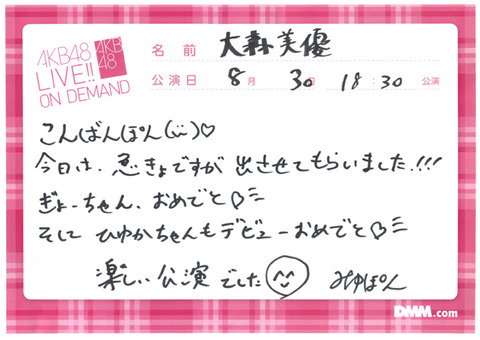 AKB48
LIVE!!
ON DEMAND
AKB
48
名前 大森美優
公演日 8月 30日 18:30 公演
こんばんぽん(¨)♡
今日は、急きょですが出させてもらいました!!!
ぎょーちゃん、おめでと♡
そして ひゆかちゃんもデビューおめでと♡
楽しい公演でした みゆぽん
DMM.com